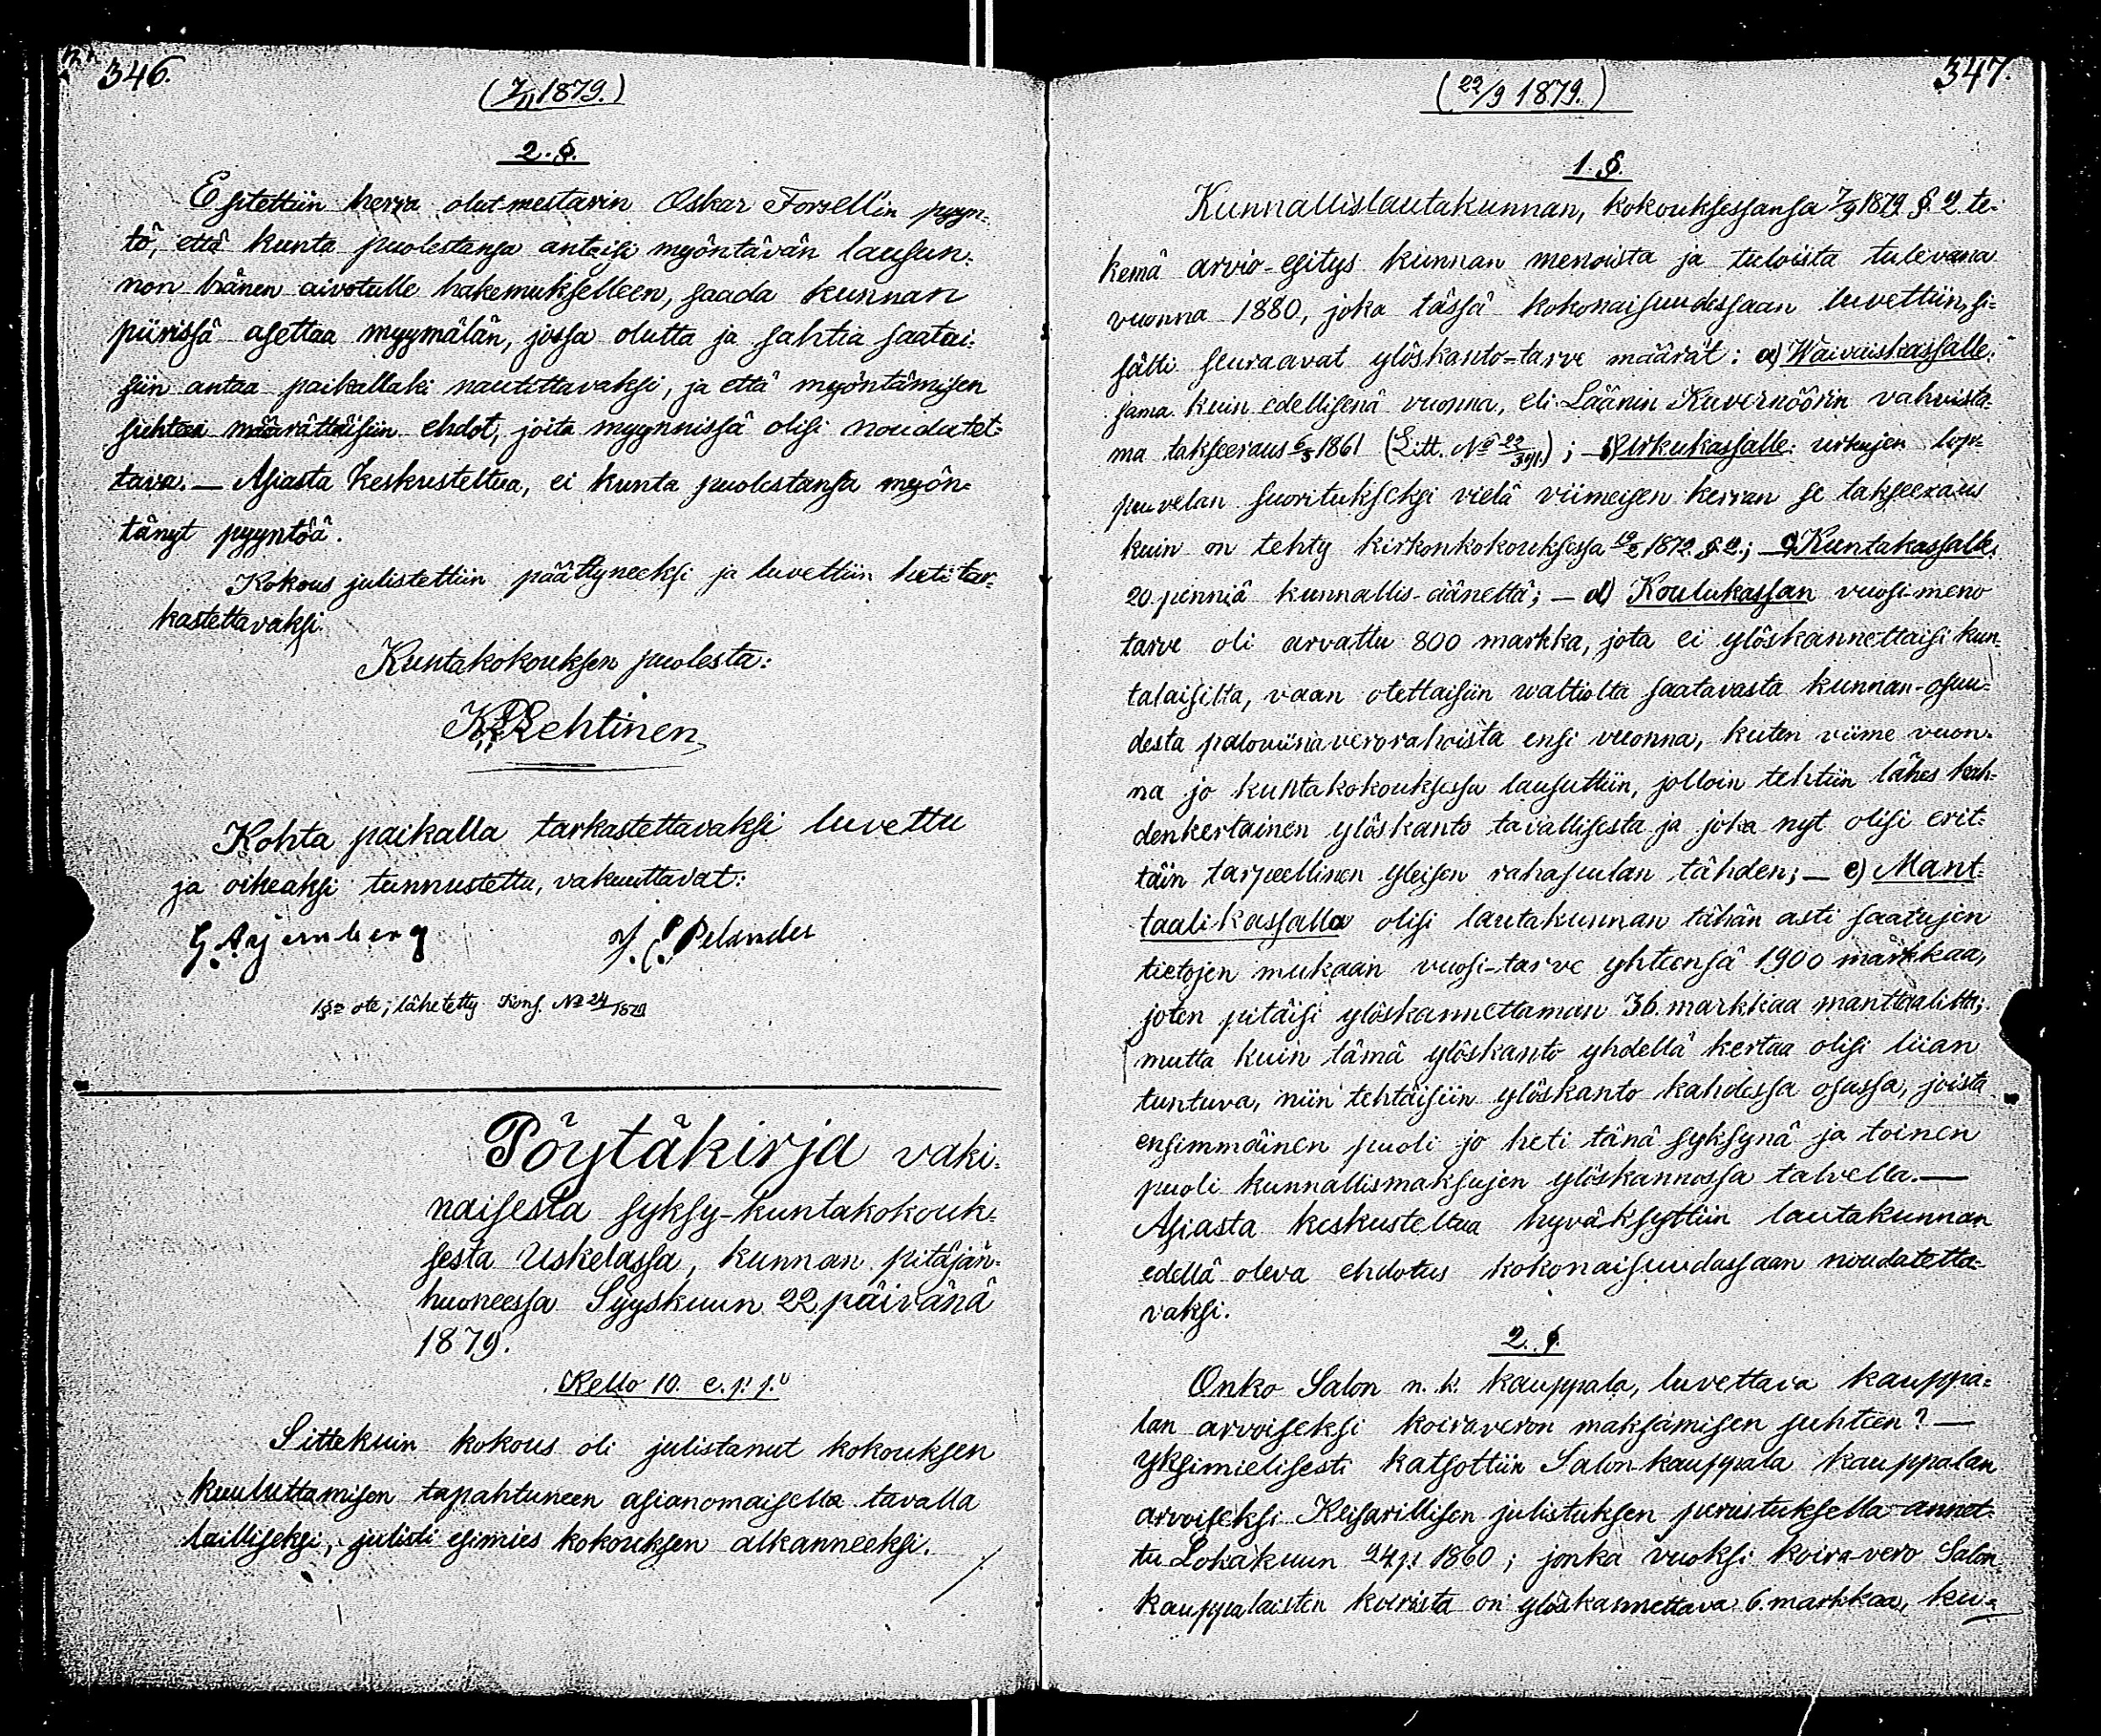 346.
(7/11 1879.)
2. §.
Esitettiin herra olutmestarin Oskar Forsellin pyyn-
tö, että kunta puolestansa antaisi myöntävän lausun-
non hänen aivotulle hakemukselleen, saada kunnan
piirissä asettaa myymälän, jossa olutta ja sahtia saatai-
siin antaa paikallaki nautittavaksi, ja että myöntämisen
suhteen määrättäisiin ehdot, joita myynnissä olisi noudatet-
tava. — Asiasta keskusteltua, ei kunta puolestansa myön-
tänyt pyyntöä.
Kokous julistettiin päättyneeksi ja luvettiin heti tar-
kastettavaksi.
Kuntakokouksen puolesta:
Lehtinen
Kohta paikalla tarkastettavaksi luvettu
ja oikeaksi tunnustettu, vakuuttavat:
G. Stjernberg J. E. Pelander
1§n ote; lähetetty Kons. No 24/1879
Pöytäkirja vaki-
naisesta syksy-kuntakokouk-
sesta Uskelassa, kunnan pitäjän-
huoneessa Syyskuun 22 päivänä
1879.
Kello 10. e. p. p.
Sittekuin kokous oli julistanut kokouksen
kuuluttamisen tapahtuneen asianomaisella tavalla
lailliseksi, julisti esimies kokouksen alkanneeksi.
347.
(22/9 1879.)
1. §.
Kunnallislautakunnan, kokouksessansa 7/9 1879 §. 2 te-
kemä arvio-esitys kunnan menoista ja tuloista tulevana
vuonna 1880, joka tässä kokonaisuudessaan luvettiin, si-
sälti seuraavat ylöskanto-tarve määrät: a) Waivaiskassalle:
sama kuin edellisenä vuonna, eli Läänin Kuvernöörin vahvista-
ma takseeraus 6/5 1861 (Litt. No 22/341.); — b) Urkukassalle: urkujen lop-
puvelan suoritukseksi vielä viimeisen kerran se takseeraus
kuin on tehty kirkonkokouksessa 19/2 1872 §. 2.; — c) Kuntakassalle:
20 penniä kunnallis-ääneltä; — d) Koulukassan vuosi-meno
tarve oli arvattu 800 markka, jota ei ylöskannettaisi kun-
talaisilta, vaan otettaisiin waltiolta saatavasta kunnan-osuu-
desta paloviinaverorahoista ensi vuonna, kuten viime vuon-
na jo kuntakokouksessa lausuttiin, jolloin tehtiin lähes kah-
denkertainen ylöskanto tavallisesta ja joka nyt olisi erit-
täin tarpeellinen yleisen rahapulan tähden; — e) Mant-
taali-kassalla olisi lautakunnan tähän asti saatujen
tietojen mukaan vuosi-tarve yhteensä 1900 markkaa,
joten pitäisi ylöskannettaman 36. markkaa manttaalilta;
mutta kuin tämä ylöskanto yhdellä kertaa olisi liian
tuntuva, niin tehtäisiin ylöskanto kahdessa osassa, joista
ensimmäinen puoli jo heti tänä syksynä ja toinen
puoli kunnallismaksujen ylöskannossa talvella. —
Asiasta keskusteltua hyväksyttiin lautakunnan
edellä oleva ehdotus kokonaisuudassaan noudatetta-
vaksi.
2. §.
Onko Salon n. k. kauppala, luvettava kauppa-
lan arvoiseksi koiraveron maksamisen suhteen? —
Yksimielisesti katsottiin Salon kauppala kauppalan
arvoiseksi Keisarillisen julistuksen perustuksella annet-
tu Lokakuun 24 p. 1860; jonka vuoksi koira-vero Salon
kauppalaisten koirista on ylöskannettava 6. markkaa, ku-